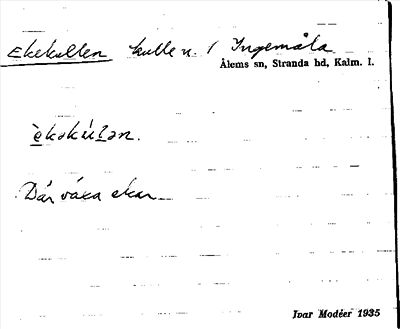 Ekekullen kulle n. / Ingemåla
Ålems sn, Stranda hd, Kalm. l.
èkəkùlən.
Där växa ekar
Ivar Modéer 1935